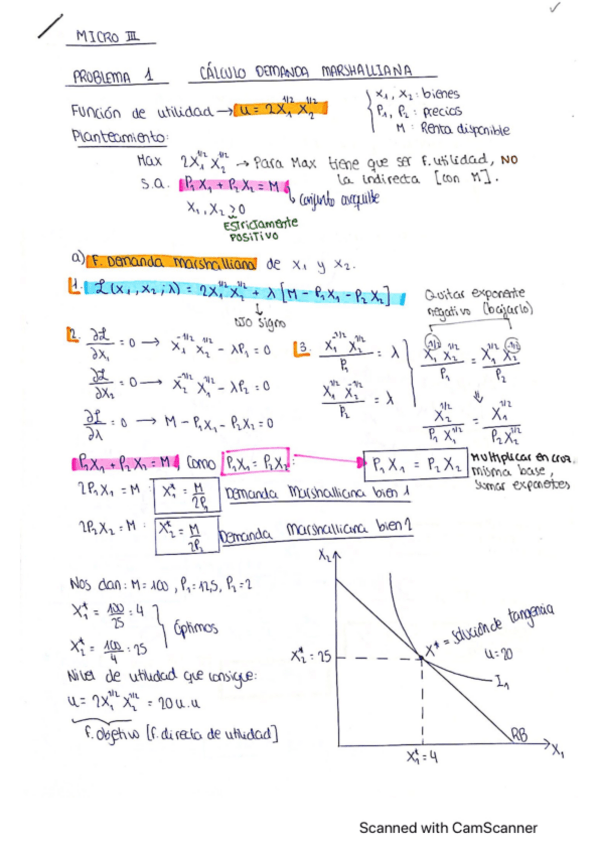 MICRO III
PROBLEMA 1 CÁLCULO DEMANDA MARSHALLIANA
Función de utilidad → u = 2X₁^1/2 X₂^1/2
X₁, X₂ : bienes
P₁, P₂ : precios
M : Renta disponible
Planteamiento:
Max 2X₁^1/2 X₂^1/2 → Para Max tiene que ser F. utilidad, NO
la indirecta [con M].
s.a. P₁X₁ + P₂X₂ = M
Conjunto asequible
X₁, X₂ ≥ 0
EStrictamente
POSITIVO
a) F. Demanda marshalliana de X₁ y X₂.
1. L(X₁, X₂; λ) = 2X₁^1/2 X₂^1/2 + λ [M - P₁X₁ - P₂X₂]
OJO signo
Quitar exponente
negativo (bajarlo)
2. ∂L/∂X₁ = 0 → X₁^-1/2 X₂^1/2 - λP₁ = 0
∂L/∂X₂ = 0 → X₂^-1/2 X₁^1/2 - λP₂ = 0
∂L/∂λ = 0 → M - P₁X₁ - P₂X₂ = 0
3. X₁^-1/2 X₂^1/2 / P₁ = λ
X₁^1/2 X₂^-1/2 / P₂ = λ
X₁^-1/2 X₂^1/2 / P₁ = X₁^1/2 X₂^-1/2 / P₂
X₂^1/2 / P₁ X₁^1/2 = X₁^1/2 / P₂ X₂^1/2
P₁X₁ + P₂X₂ = M, Como P₁X₁ = P₂X₂ : P₁X₁ = P₂X₂
Multiplicar en cruz.
misma base,
sumar exponetes
2P₁X₁ = M : X₁* = M/2P₁ Demanda Marshalliana bien 1
2P₂X₂ = M : X₂* = M/2P₂ Demanda Marshalliana bien 2
Nos dan: M = 100, P₁ = 12,5, P₂ = 2
X₁* = 100/25 = 4
X₂* = 100/4 = 25
Óptimos
Nivel de utilidad que consigue:
u = 2X₁^1/2 X₂^1/2 = 20 u.u
F. objetivo [f. directa de utilidad]
X₂
X₂* = 25
X* = solución de tangencia
u = 20
I₁
RB
X₁
X₁* = 4
Scanned with CamScanner